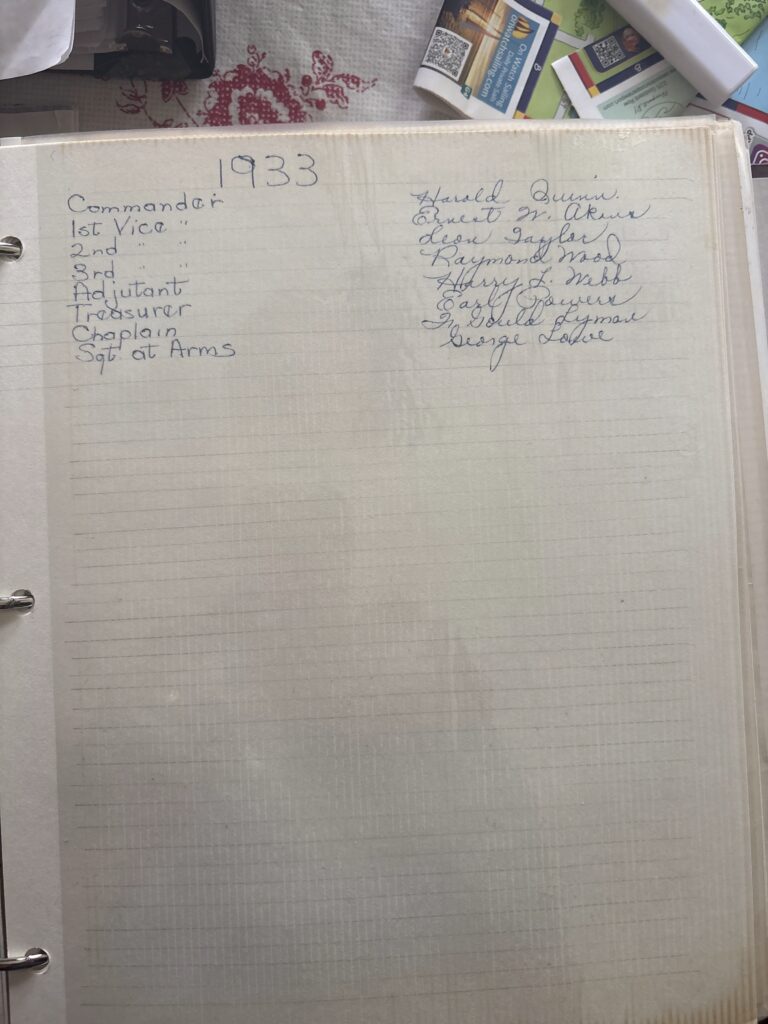 On Watch Sailing
onwatchsailing.com
1933
Commander Harold Quinn.
1st Vice " Ernest W. Akins
2nd " " Leon Taylor
3rd " " Raymond Wood
Adjutant Harry L. Webb
Treasurer Earl Powers
Chaplain Gould Lyman
Sgt at Arms George Lowe